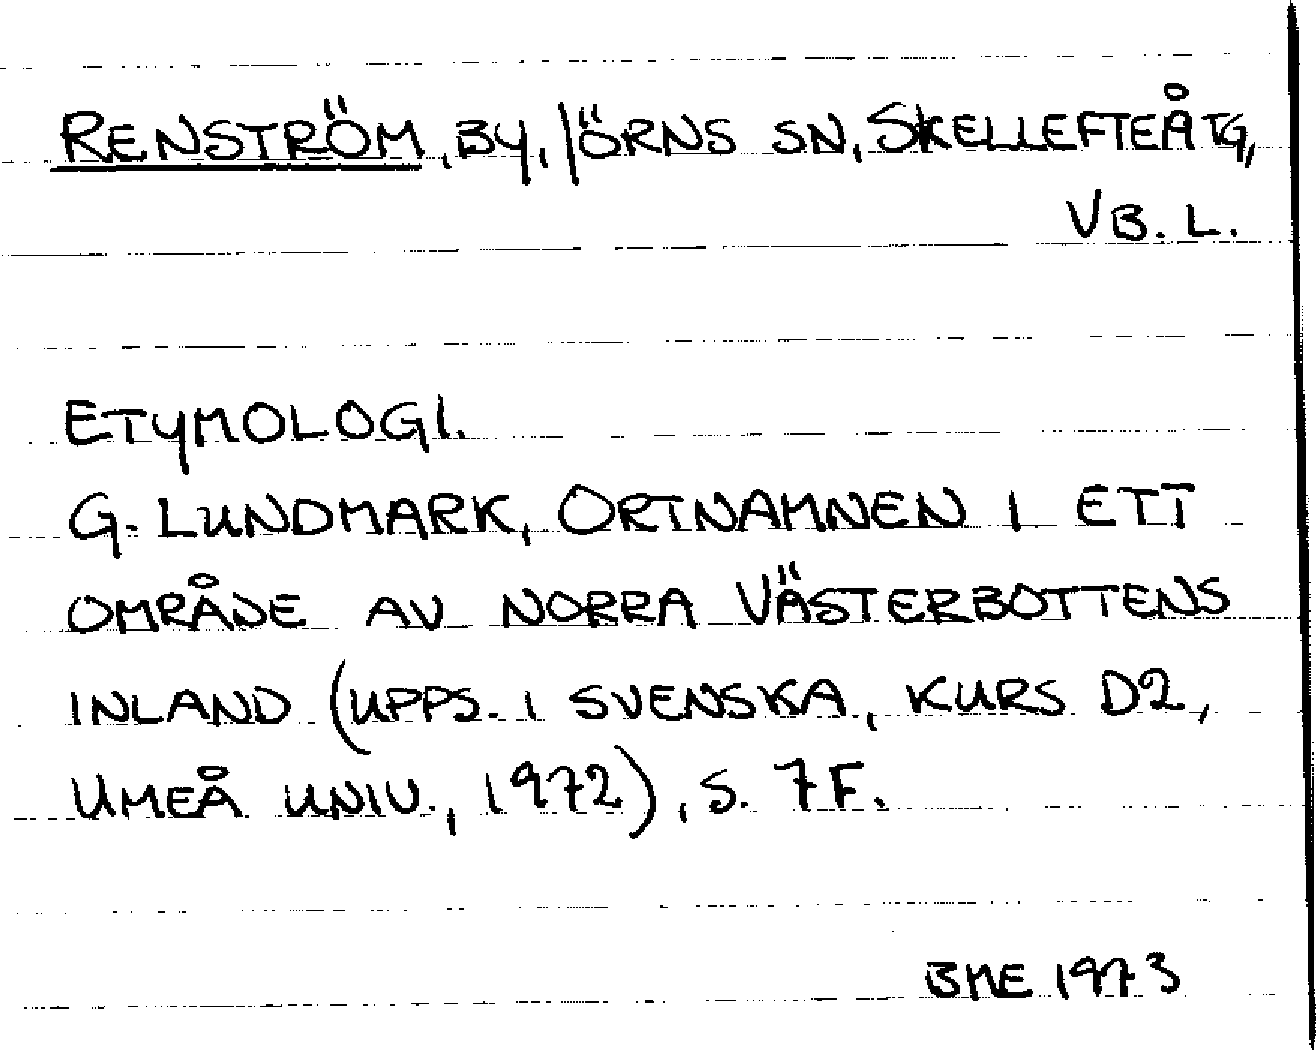 RENSTRÖM, BY, JÖRNS SN, SKELLEFTEÅ TG,
VB. L.
ETYMOLOGI.
G. LUNDMARK, ORTNAMNEN I ETT
OMRÅDE AV NORRA VÄSTERBOTTENS
INLAND (UPPS. I SVENSKA, KURS D2,
UMEÅ UNIV., 1972), S. 7 F.
BME 1973